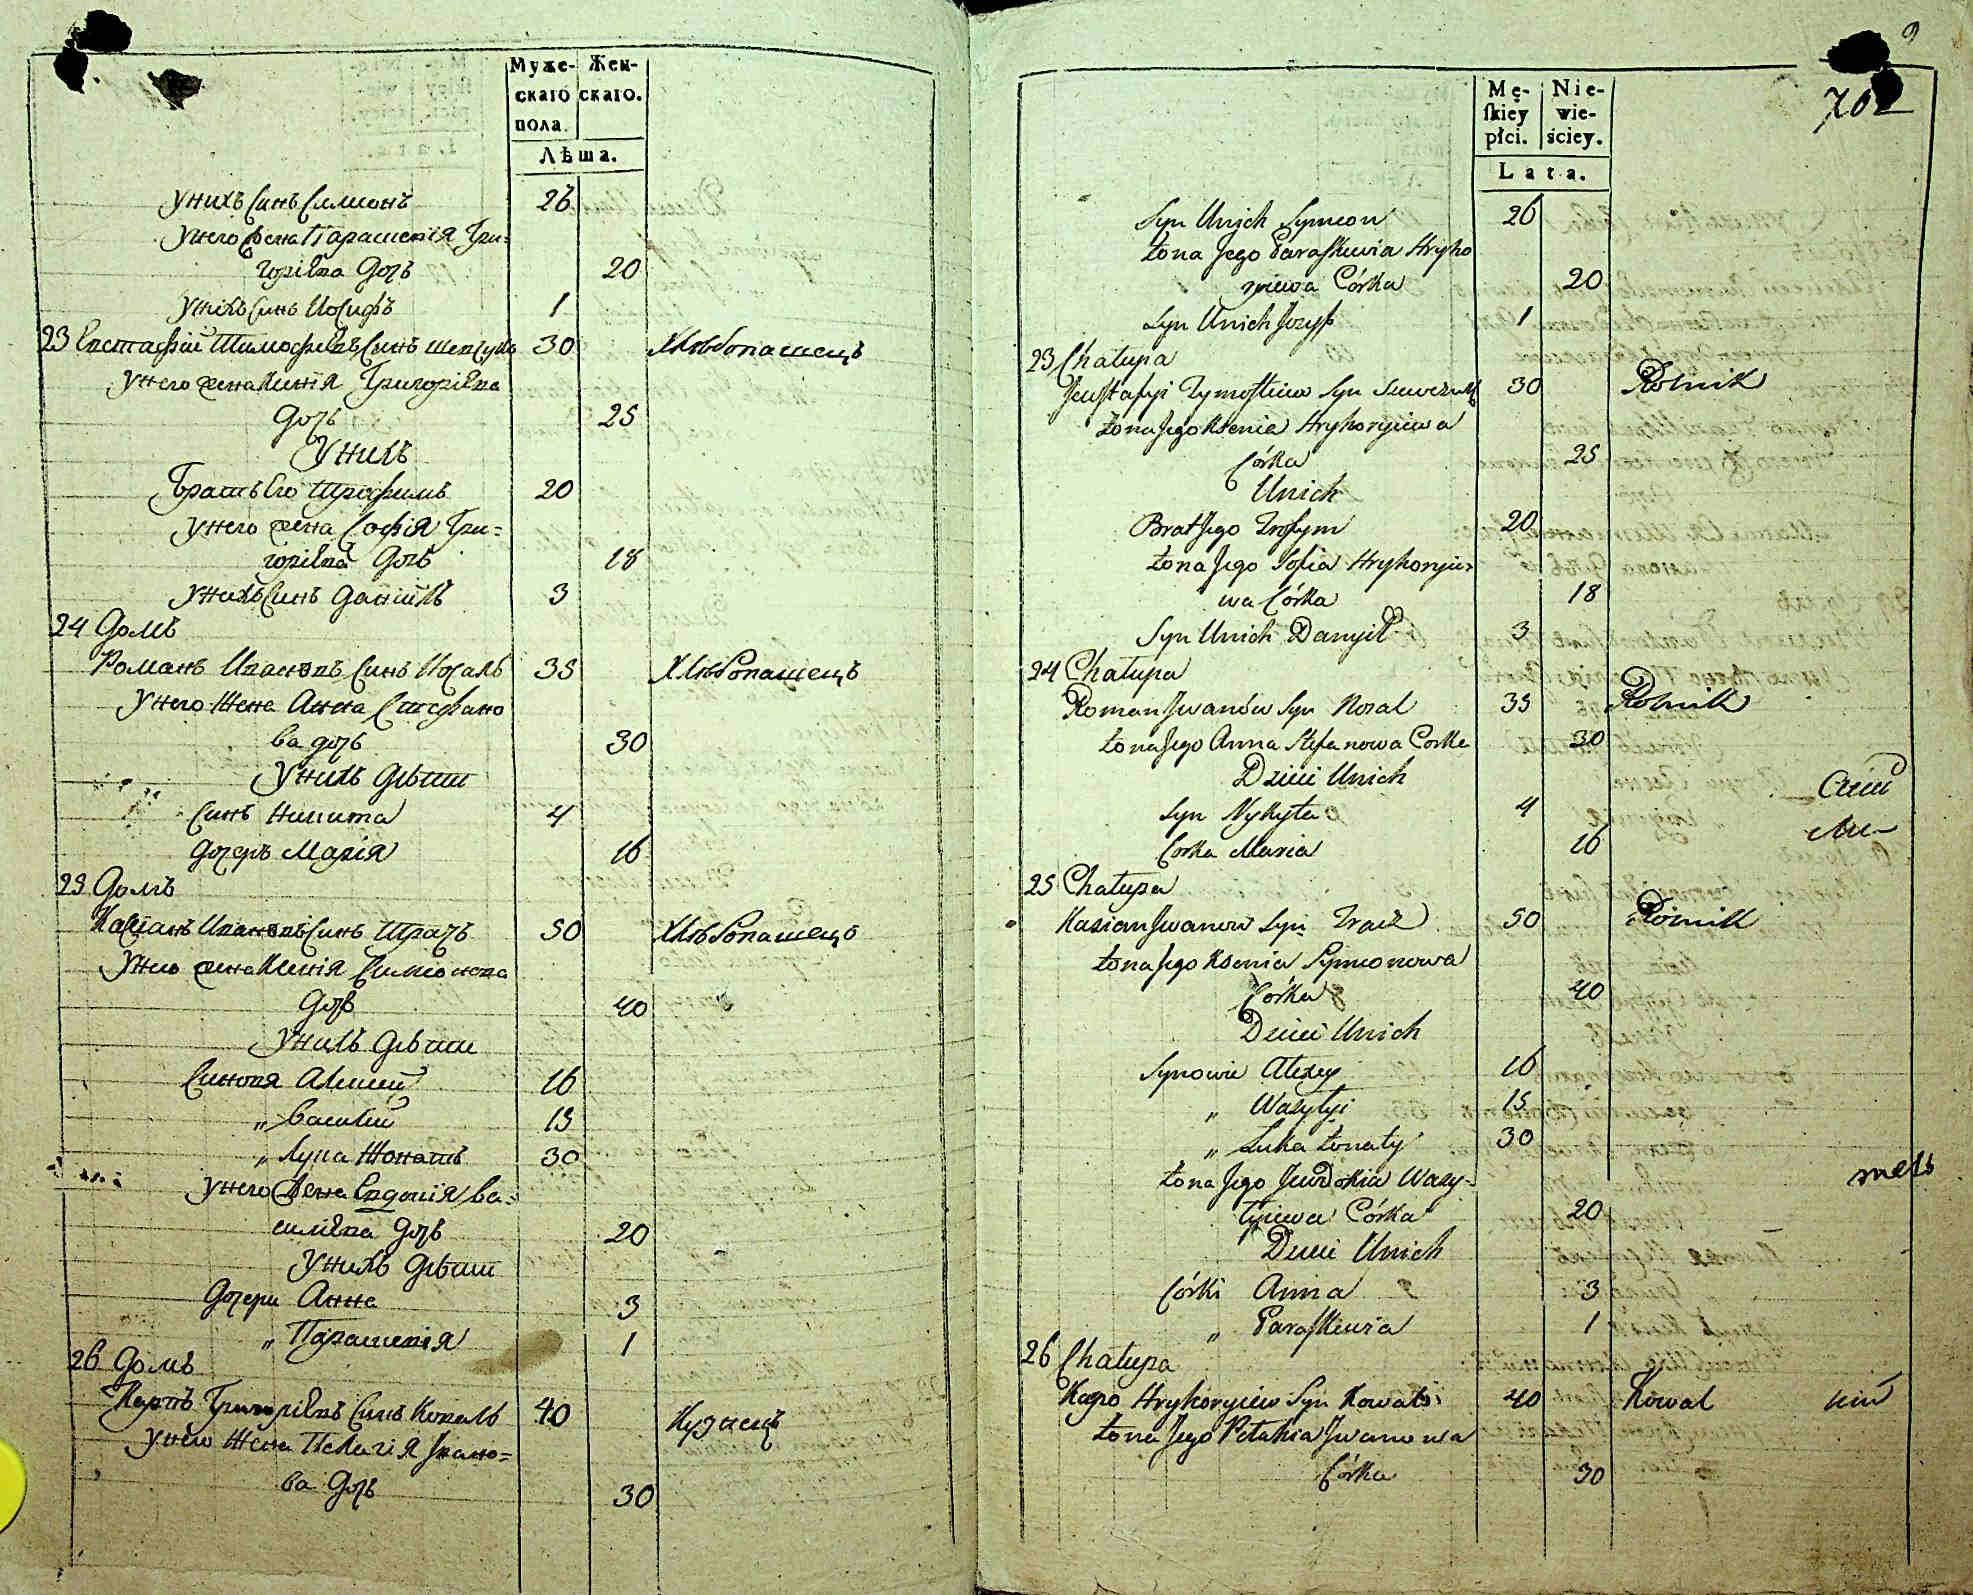 Муже- Жен-
скаго скаго.
пола.
Лѣта.
Унихъ Синъ Симионъ 26
Унего Жена Параскевія Гри-
горіева Дочь 20
Унихъ Синъ Иосифъ 1
23 Евстафій Тимофѣевъ Синъ Шевчукъ 30 Хлѣбопашецъ
Унего жена Ксенія Григоріева
Дочь 25
Унихъ
Братъ Его Трофимъ 20
Унего жена Софія Гри-
горіева Дочь 18
Унихъ Синъ Даніилъ 3
24 Домъ
Романъ Ивановъ Синъ Носаль 35 Хлѣбопашецъ
Унего Жена Анна Стефано
ва дочь 30
Унихъ Дѣти
Синъ Никита 4
Дочерь Марія 16
25 Домъ
Касіанъ Ивановъ Синъ Трачъ 50 Хлѣбопашецъ
Унего жена Ксенія Симионова
Дочь 40
Унихъ Дѣти
Синовя Алексій 16
„ Василій 15
„ Лука Жонатъ 30
Унего Жена Евдокія Ва-
силіева Дочь 20
Унихъ Дѣти
Дочери Анна 3
„ Параскевія 1
26 Домъ
Карпъ Григоріевъ Синъ Коваль 40 Кузнецъ
Унего Жена Пелагія Ивано-
ва Дочь 30
9
702
Mę- Nie-
skiey wie-
płci. ściey.
Lata.
Syn Unich Symeon 26
Żona Jego Paraskiewia Hryho
ryiewa Córka 20
Syn Unich Jozyf 1
23 Chałupa
Jeustafyi Tymofiiew Syn Szewczuk 30 Rolnik
Żona Jego Ksenia Hryhoryiewa
Córka 25
Unich
Brat Jego Trofym 20
Żona Jego Sofia Hryhoryie-
wa Córka 18
Syn Unich Danyił 3
24 Chałupa
Roman Jwanów Syn Nosal 35 Rolnik
Żona Jego Anna Stefanowa Corka 30
Dzieci Unich
Syn Nykyta 4
Corka Maria 16
25 Chałupa
Kasian Jwanow Syn Tracz 50 Rolnik
Żona Jego Ksenia Symeonowa
Córka 40
Dzieci Unich
Synowie Alexey 16
„ Wasylyi 15
„ Luka Żonaty 30
Żona Jego Jewdokia Wasy-
lyiewa Córka 20
Dzieci Unich
Córki Anna 3
„ Paraskiewia 1
26 Chałupa
Karpo Hryhoryiew Syn Kowal 40 Kowal
Żona Jego Pełahia Jwanowa
Córka 30